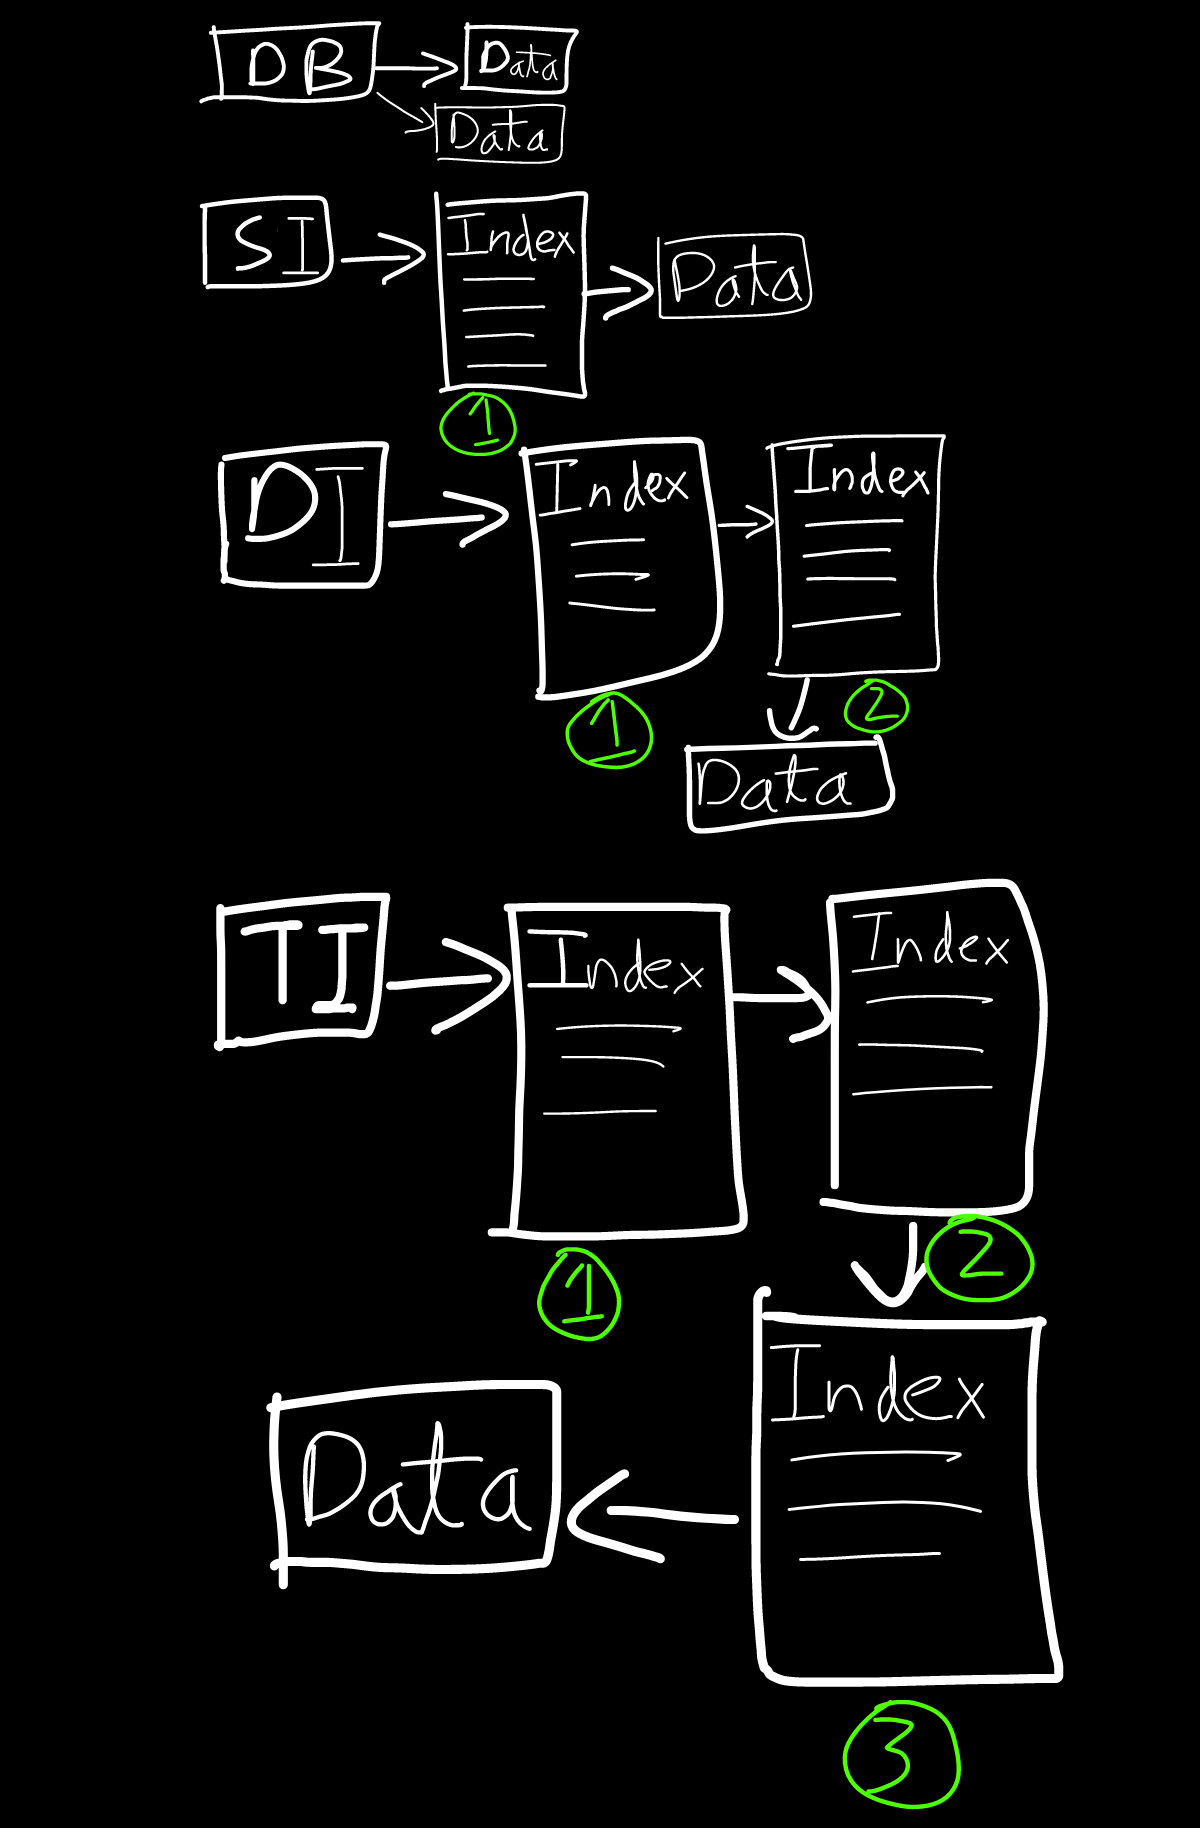 DB
Data
Data
SI
Index
Data
1
DI
Index
Index
1
2
Data
TI
Index
Index
1
2
Index
Data
3